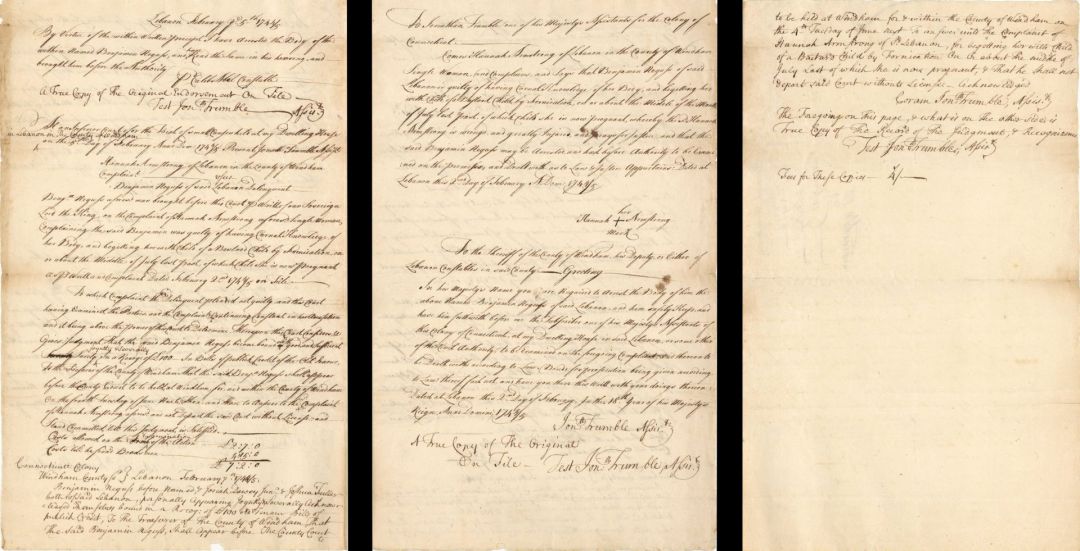 Lebanon February 5th 1744/5
By Virtue of the within Written Precept I have arrested the Body of the
within Named Benjamin Neguss, and Read the Same in his hearing, and
brought him before the Authority
Constable
A True Copy of the Original Endorsement On File
Test Jonth Trumble Assist
At my Dwelling House
in Lebanon in the County of Windham
on the 5th Day of February Anno Dom 1744/5 Present Jonath Trumble Assist
Hannah Armstrong of Lebanon in the County of Windham
Complaint
versus
Benjamin Neguss of said Lebanon Delinquent
Benjn Neguss aforesd was brought before this Court by Writ of our Sovereign
Lord the King, on the Complaint of Hannah Armstrong aforesd Single Woman,
Complaining the said Benjamin was guilty of having Carnal Knowledge of
her Body, and begetting her with Child of a Bastard Child by Fornication, on
or about the Middle of July last past, of which Child she is now Pregnant
as Complaint Dated February 2d 1744/5 on File
To which Complaint the Delinquent pleaded not guilty and this Court
having Examined the Parties and the Complainant Continuing Constant in her Accusation
and it being above the Power of this Court to Determine
Gives Judgment that the said Benjamin Neguss become bound
Joyntly & Severally
Surety In a Recog. of £100
to the Treasurer of the County of Windham that the said Benjn Neguss shall appear
before the County Court to be held at Windham for and within the County of Windham
On the fourth Tuesday of June Next, and there to Answer to the Complaint
of Hannah Armstrong aforesd and not depart the said Court without License and
stand Committed till this Judgment is Satisfied
Costs allowed on the Examination
Costs
Connecticut Colony
Windham County Ss Lebanon February 5th 1744/5
Benjamin Neguss before Named, & Josiah Dewey Junr & Joshua Fuller
both of said Lebanon, personally Appearing Joyntly & Severally Acknow-
ledged themselves bound in a Recog. of £100
publick Credit, To the Treasurer of the County of Windham, That
the said Benjamin Neguss, Shall Appear before the County Court
To Jonathan Trumble one of his Majestys Assistants for the Colony of
Connecticut
Comes Hannah Armstrong of Lebanon in the County of Windham
Single Woman, and Complains and Says that Benjamin Neguss of said
Lebanon is guilty of having Carnal Knowledge of her Body, and begetting her
with Child of a Bastard Child by Fornication, on or about the Middle of the Month
of July last past, of which Child she is now pregnant, whereby the sd Hannah
Armstrong is and greatly Injured and that
the said Benjamin Neguss may be Arrested and had before Authority to be Exami-
ned on the premisses, and Dealt with as to Law & Justice Appertains. Dated at
Lebanon this 2d Day of February A Dom: 1744/5
her
Hannah + Armstrong
mark
To the Sheriff of the County of Windham, his Deputy, or Either of
Lebanon Constables in said County Greeting
In his Majestys Name you are Required to Arrest the Body of him the
above Named Benjamin Neguss of said Lebanon, and him safely Keep, and
have him forthwith before me the Subscriber one of his Majestys Assistants of
this Colony of Connecticut, at my Dwelling House in said Lebanon, or some other
of the Civil Authority to be Examined on the foregoing Complaint and thereon to
be Dealt with according to Law
to Law thereof fail not, and have you there this Writ with your doings thereon
Dated at Lebanon this 2d Day of February, In the 18th Year of his Majestys
Reign, Anno Domini 1744/5
Jonth Trumble Assist
A True Copy of The Original
On File Test Jonth Trumble, Assist
to be held at Windham for & within the County of Windham on
the 4th Tuesday of June Next to answer unto the Complaint of
Hannah Armstrong of sd Lebanon, for begetting her with Child
of a Bastard Child by Fornication On or about the middle of
July Last of which She is now pregnant, & that he shall not
depart said Court without License - Acknowledged
Coram Jonth Trumble, Assist
The Foregoing on this page, & what is on the other Side is
True Copy of the Record of the Judgment, & Recognizance
Test Jonth Trumble, Assist
Fees for These Copies - 4/-